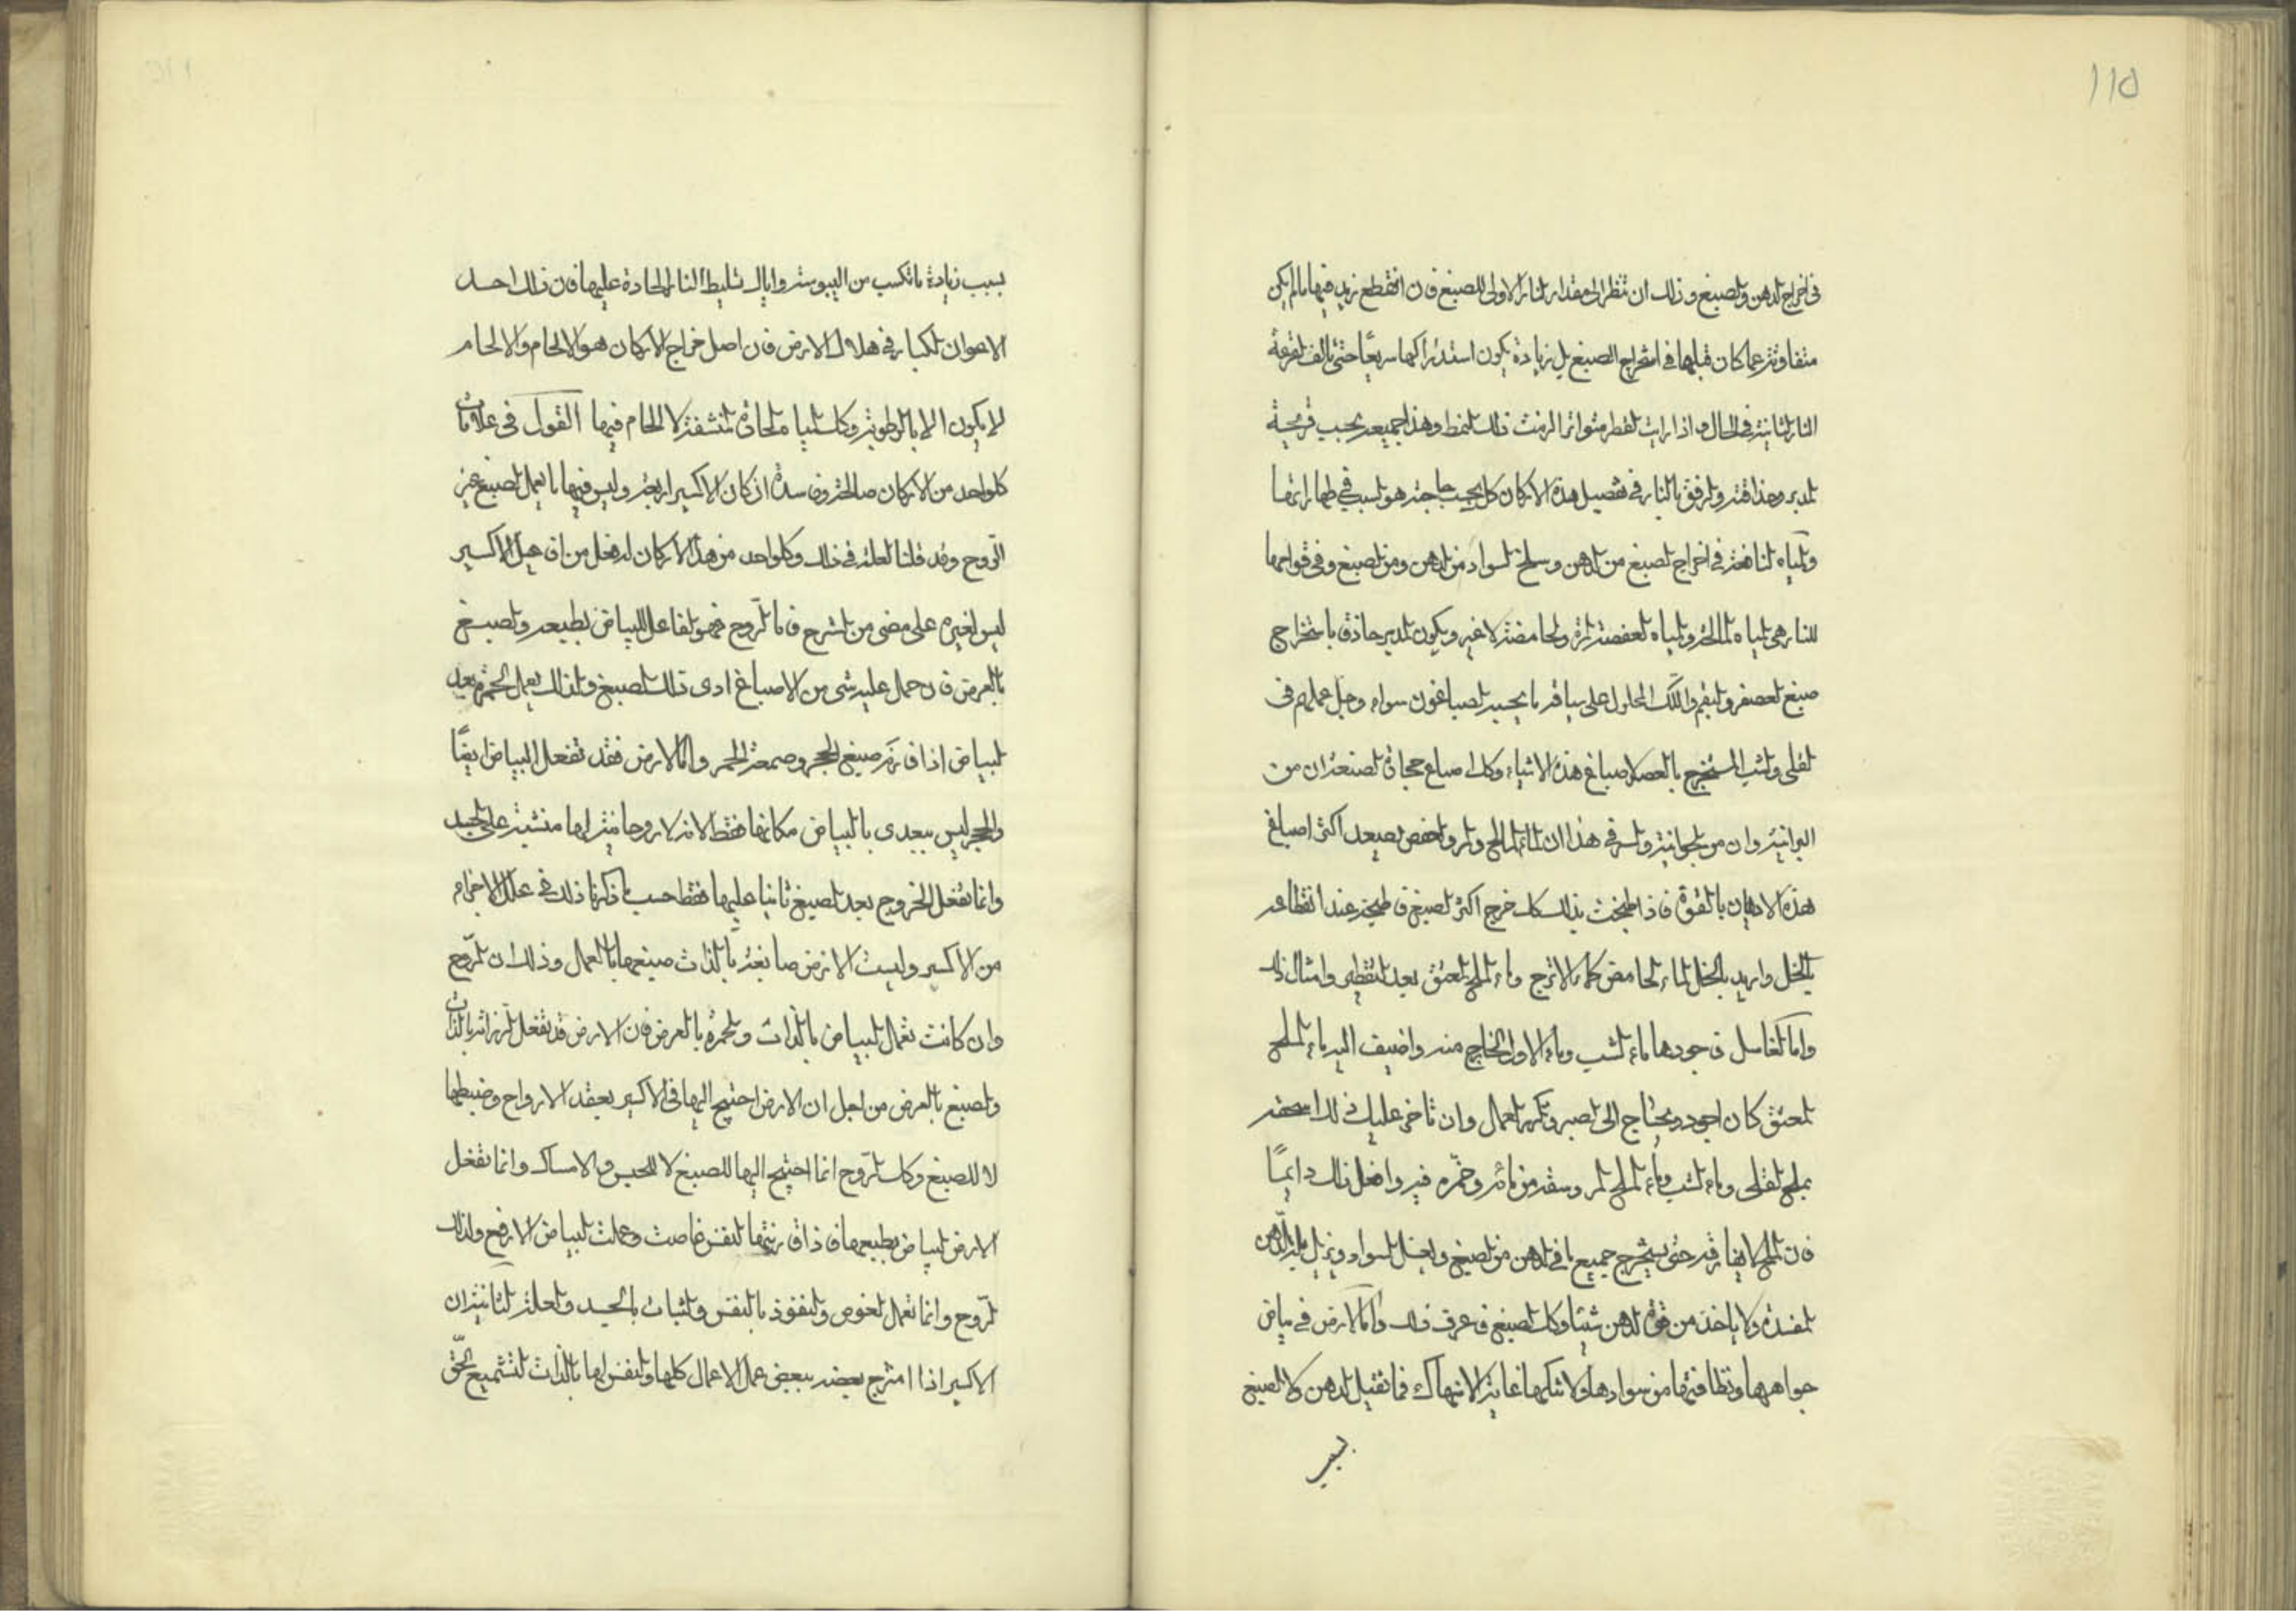 ١١٥
فى اخراج الدهن والصبغ وذلك ان تنظر الى مقدار النار الاولى للصبغ فان انقطع زيد فيها ما لم يكن
متفاوتة عما كان قبلها فى استخراج الصبغ بل زيادة يكون استدراكها سريعًا حتى تالف القرعة
النار الثانية فى الحال واذا رايت القطر متواترا لزمت ذلك النمط وهذا جميعه بحسب قريحة
المدبر وحذاقته والرفق بالنار فى تفصيل هذه الاركان كل بحسب حاجته هو السبب فى طهارتها
والمياه النافعة فى اخراج الصبغ من الدهن وسلخ السواد من الدهن ومن الصبغ وفى قوامها
للنار هى المياه المالحة والمياه العفصة المرة والحامضة لا غير ويكون المدبر حاذق باستخراج
صبغ العصفر والبقم واللك المحلول على سياقة ما يجيد الصباغون سواه وجل عملهم فى
القلى والشب المستخرج بالعصر لاصباغ هذه الاشياء وكذا صباغ حجارة الصنعة ان من
البرانية وان من الجوانية والسر فى هذا ان الماء المالح والمر والعفص يصعد اكثر اصباغ
هذه الادهان بالقوة فاذا طبخت بذلك كله خرج اكثر الصبغ فاطبخه عند انقطاعه
بالخل واريد بالخل الماء الحامض كماء الاترج وماء الملح المعتق بعد التقطير وامثال ذلك
واما المغاسل فاجودها ماء الشب وماء الاول الخارج منه واضيف اليه ماء الملح
المعتق كان اجود ويحتاج الى الصبر وتكرير العمال وان تاخر عليك فى لدا
بملح القلى وماء الشب وماء الملح المر وسقه من مائه وخمره فيه وافعل ذلك دايمًا
فان الملح لا يفارقه حتى يستخرج جميع ما فى الدهن من الصبغ ويغسل السواد ويزيل الدهن
المفسدة ولا ياخذ من قوة الدهن شيئا وكذا الصبغ فاعرف ذلك واما الارض فى بياض
جواهرها ونظافتها من سوادها ولا تنكها غاية الانتهاك فما تقبل الدهن ولا الصبغ
بسبب
بسبب زيادة ما تكسب من اليبوسة واياك تسليط النار الحادة عليها فان ذلك احد
الاعوان الكبار فى هلاك الارض فان اصل خراج الاركان هو الالحام والالحام
لا يكون الا بالرطوبة وكل المياه الحارة المنشفة لا الحام فيها القول فى علامات
كل واحد من الاركان صالحة وفاسدة اذ كان الاكسير اربعة وليس فيها ما يعمل الصبغ غير
الروح وقد قلنا العلة فى ذلك وكل واحد من هذه الاركان له فعل من افاعيل الاكسير
ليس لغيره على مضى من الشرح فاما الروح فهو الفاعل للبياض بطبيعه والصبغ
بالعرض فان حمل عليه شى من الاصباغ ادى ذلك الصبغ ولذلك يعمل الحمرة بعد
البياض اذا قارنه صبغ الحجر وصمغة الحمر واما الارض فقد تفعل البياض ايضًا
والحجر ليس ببعدى بالبياض مكانها فقط لانه لا روحانية لها منشية على الجسد
وانما تفعل الخروج بعد الصبغ ثانيا عليها فقط حسب ما ذكرنا ذلك فى علل الاجزاء
من الاكسير وليست الارض صابغة بالذات صبغها بالعمال وذلك ان الروح
وان كانت تعمال البياض بالذات والحمرة بالعرض فان الارض قد تفعل الرزانة بالذات
والصبغ بالعرض من اجل ان الارض احتيج اليها فى الاكسير بعقد الارواح وضبطها
لا للصبغ وكذا الروح انما احتيج اليها للصبغ لا للحبس والامساك وانما تفعل
الارض البياض بطبيعها فاذا قارنتها النفس غاصت وعملت البياض الارفع ولذلك
الروح وانما تعمال الغوص والنفوذ بالنفس والثبات بالجسد والعلة الثانية ان
الاكسير اذا امتزج بعضه ببعض عمال الاعمال كلها والنفس لها بالذات التشميع الحق